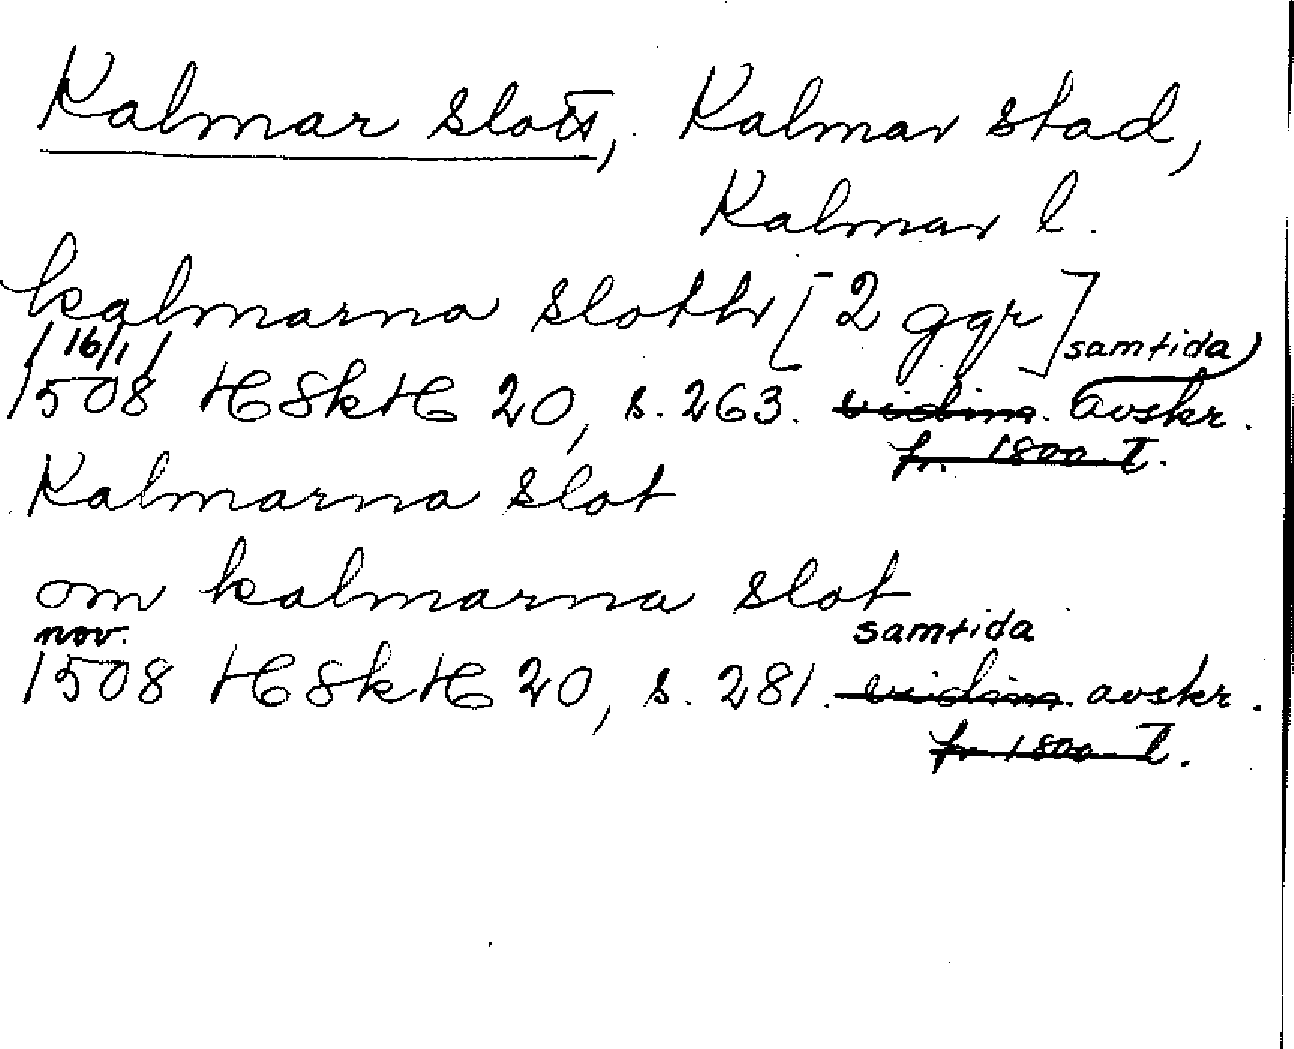 Kalmar slott, Kalmar stad,
Kalmar l.
kalmarna slothr [2 ggr]
/16/1/ samtida
1508 HSkH 20, s. 263. vidim. avskr.
fr. 1800-t.
Kalmarna slot
om kalmarna slot
nov. samtida
1508 HSkH 20, s. 281. vidim. avskr.
fr. 1800-t.